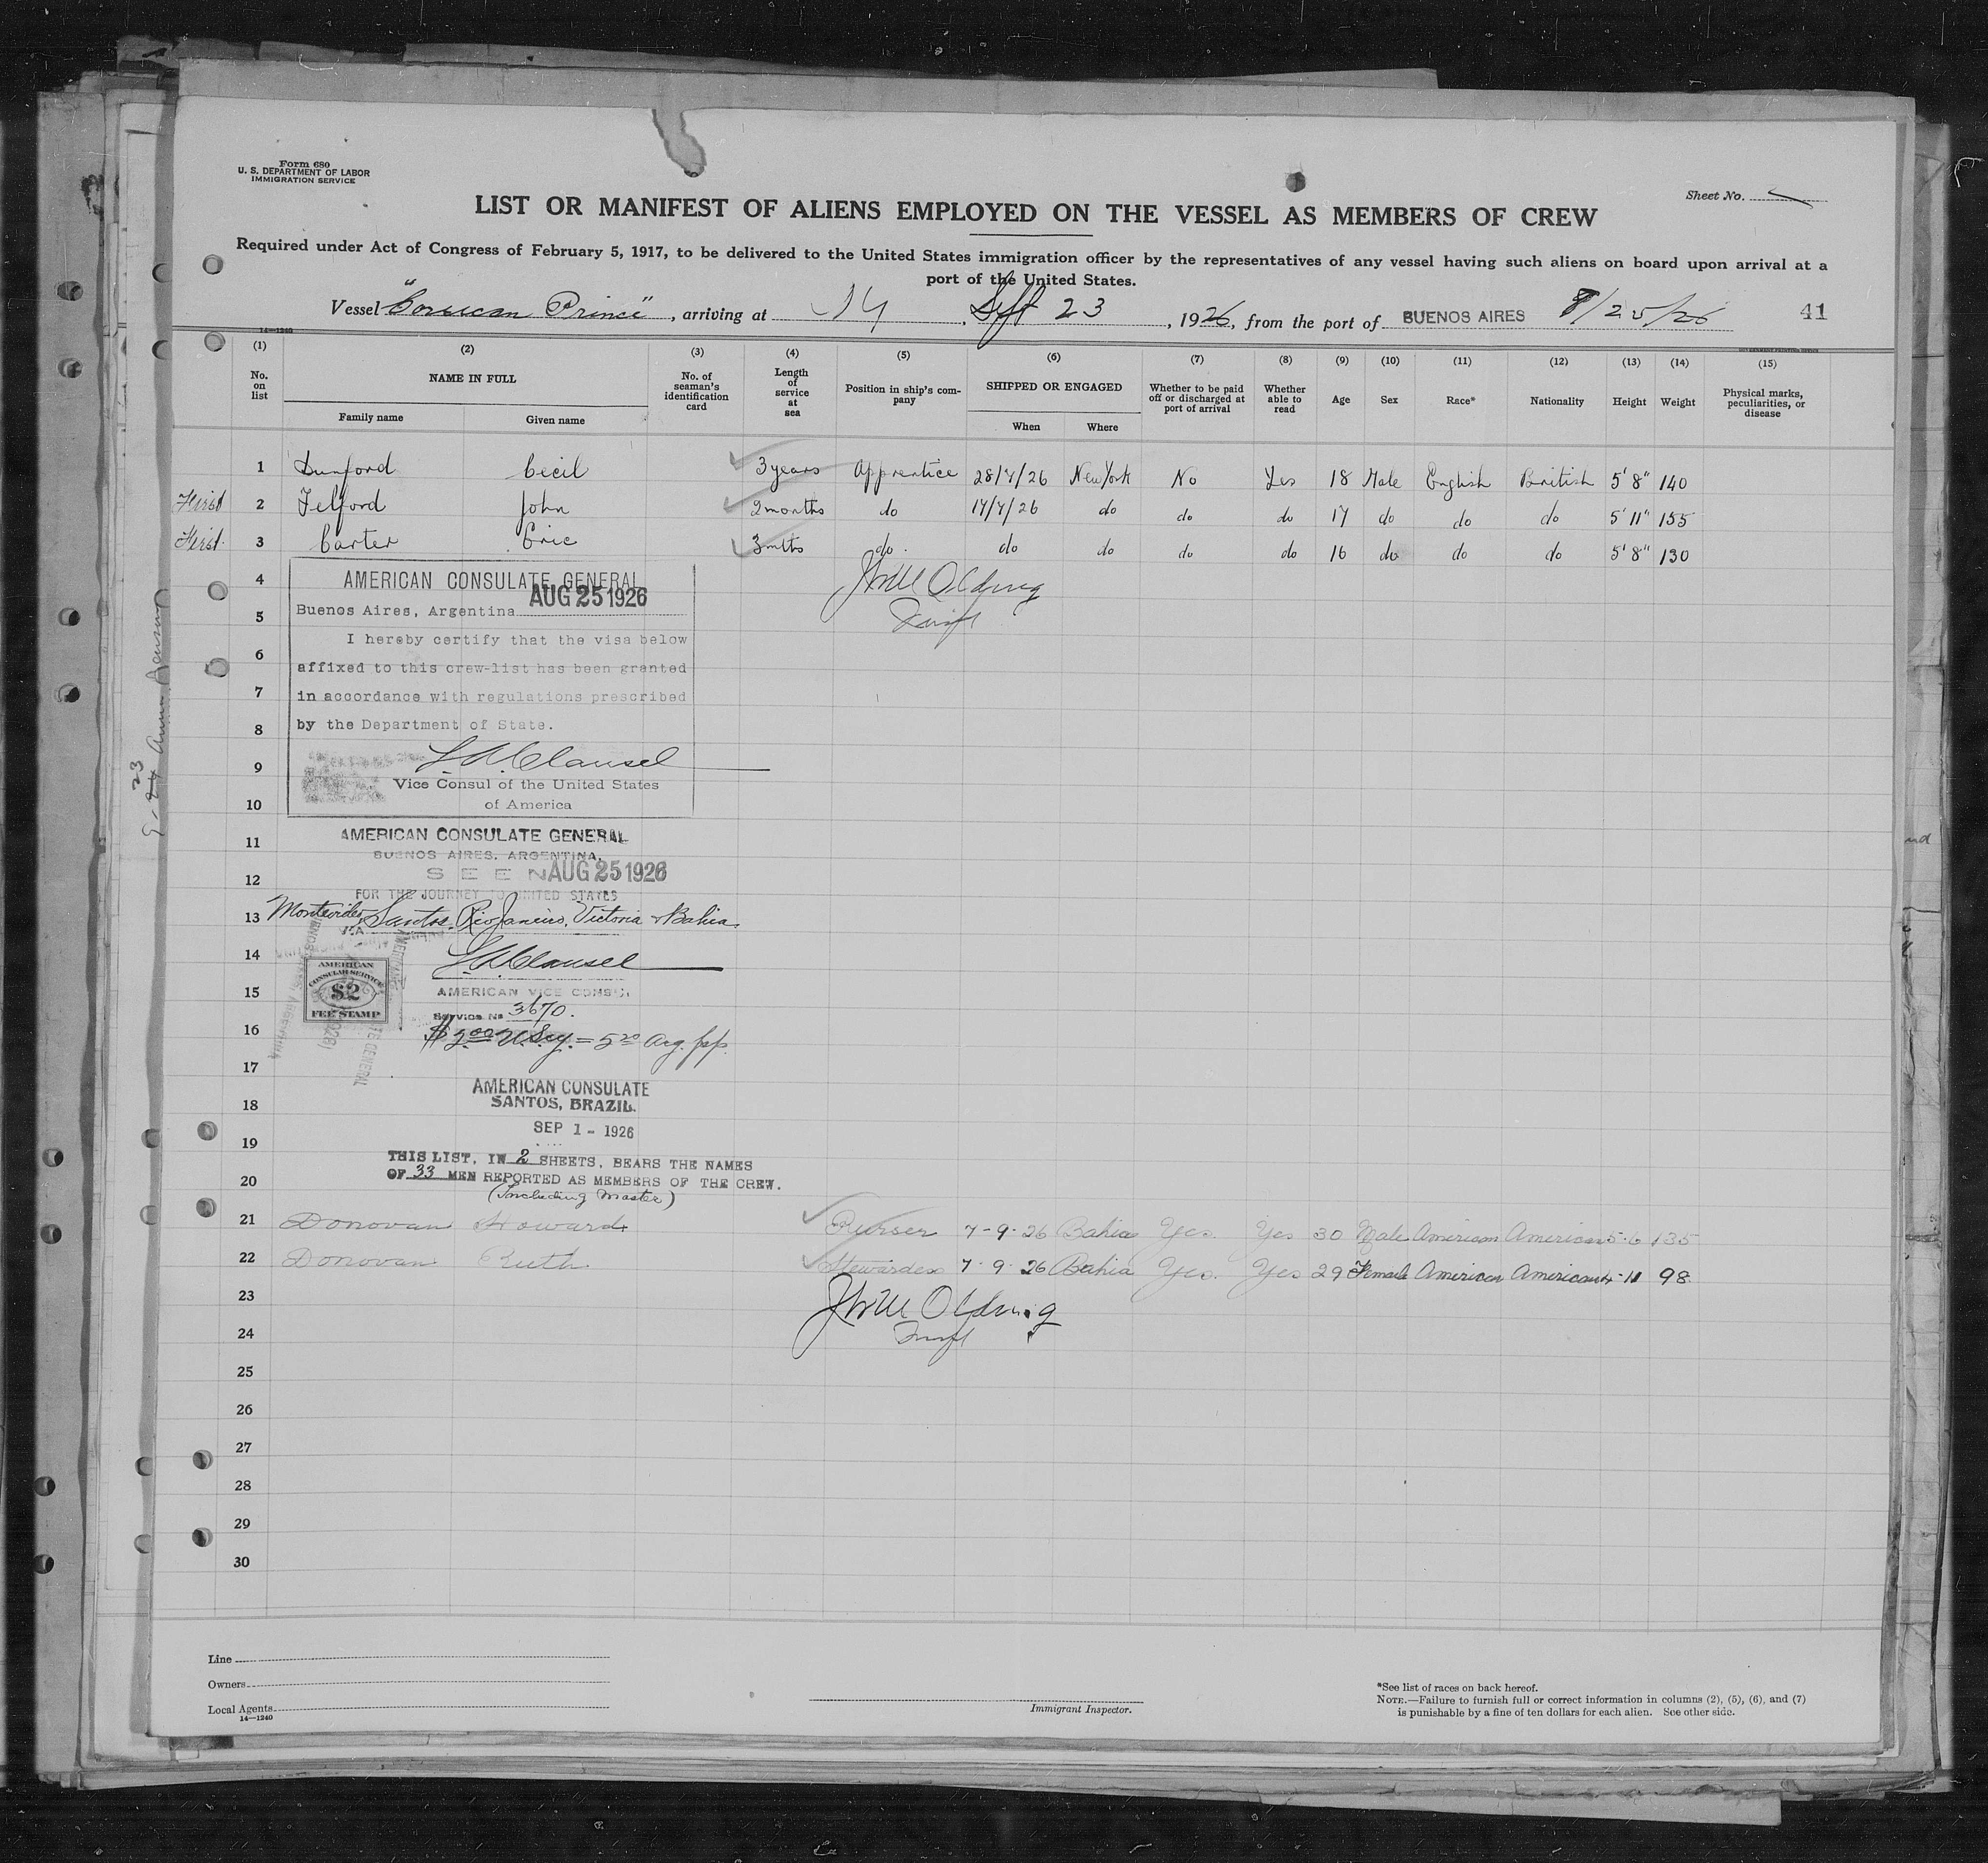 Form 680
U. S. DEPARTMENT OF LABOR
IMMIGRATION SERVICE
Sheet No.
LIST OR MANIFEST OF ALIENS EMPLOYED ON THE VESSEL AS MEMBERS OF CREW
Required under Act of Congress of February 5, 1917, to be delivered to the United States immigration officer by the representatives of any vessel having such aliens on board upon arrival at a
port of the United States.
Vessel "Corsican Prince", arriving at , Sept 23, 1926, from the port of BUENOS AIRES 8/25/26 41
14—1240
(1) (2) (3) (4) (5) (6) (7) (8) (9) (10) (11) (12) (13) (14) (15)
No. on list NAME IN FULL Family name Given name No. of seaman's identification card Length of service at sea Position in ship's company SHIPPED OR ENGAGED When Where Whether to be paid off or discharged at port of arrival Whether able to read Age Sex Race* Nationality Height Weight Physical marks, peculiarities, or disease
1 Dunford Cecil 3 years Apprentice 28/4/26 New York No Yes 18 Male English British 5' 8" 140
First 2 Telford John 2 months do 17/7/26 do do do 17 do do do 5' 11" 155
First 3 Carter Eric 3 mths do do do do do 16 do do do 5' 8" 130
4
AMERICAN CONSULATE GENERAL
5
Buenos Aires, Argentina AUG 25 1926
I hereby certify that the visa below
6
affixed to this crew-list has been granted
7
in accordance with regulations prescribed
8
by the Department of State.
9
Clausel
Vice Consul of the United States
10
of America
11
AMERICAN CONSULATE GENERAL
BUENOS AIRES, ARGENTINA,
12
SEEN AUG 25 1926
FOR THE JOURNEY TO UNITED STATES
13
Montevideo, Santos, Rio Janeiro, Victoria & Bahia
VIA
14
Clausel
AMERICAN
CONSULAR SERVICE
$2
FEE STAMP
15
AMERICAN VICE CONSUL
Service No 3670.
16
$2.00 U.S.cy. = 5.20 Arg. p/p.
17
AMERICAN CONSULATE
18
SANTOS, BRAZIL.
SEP 1 - 1926
19
THIS LIST, IN 2 SHEETS, BEARS THE NAMES
20
OF 33 MEN REPORTED AS MEMBERS OF THE CREW.
(Including Master)
21 Donovan Howard Purser 7-9-26 Bahia Yes. Yes 30 Male American American 5-6 135
22 Donovan Ruth Stewardess 7-9-26 Bahia Yes. Yes 29 Female American American 4-11 98
23
24
25
26
27
28
29
30
Line
Owners
Local Agents
14—1240
Immigrant Inspector.
*See list of races on back hereof.
NOTE.—Failure to furnish full or correct information in columns (2), (5), (6), and (7)
is punishable by a fine of ten dollars for each alien. See other side.